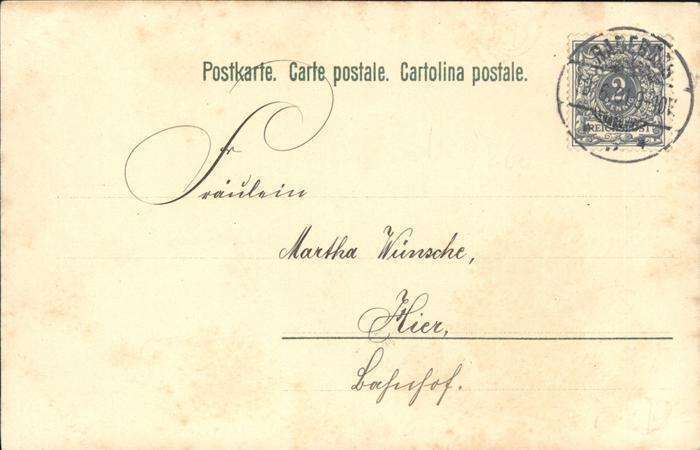 Postkarte. Carte postale. Cartolina postale.
2
REICHSPOST
Fräulein
Martha Wünsche,
Hier,
Bahnhof.